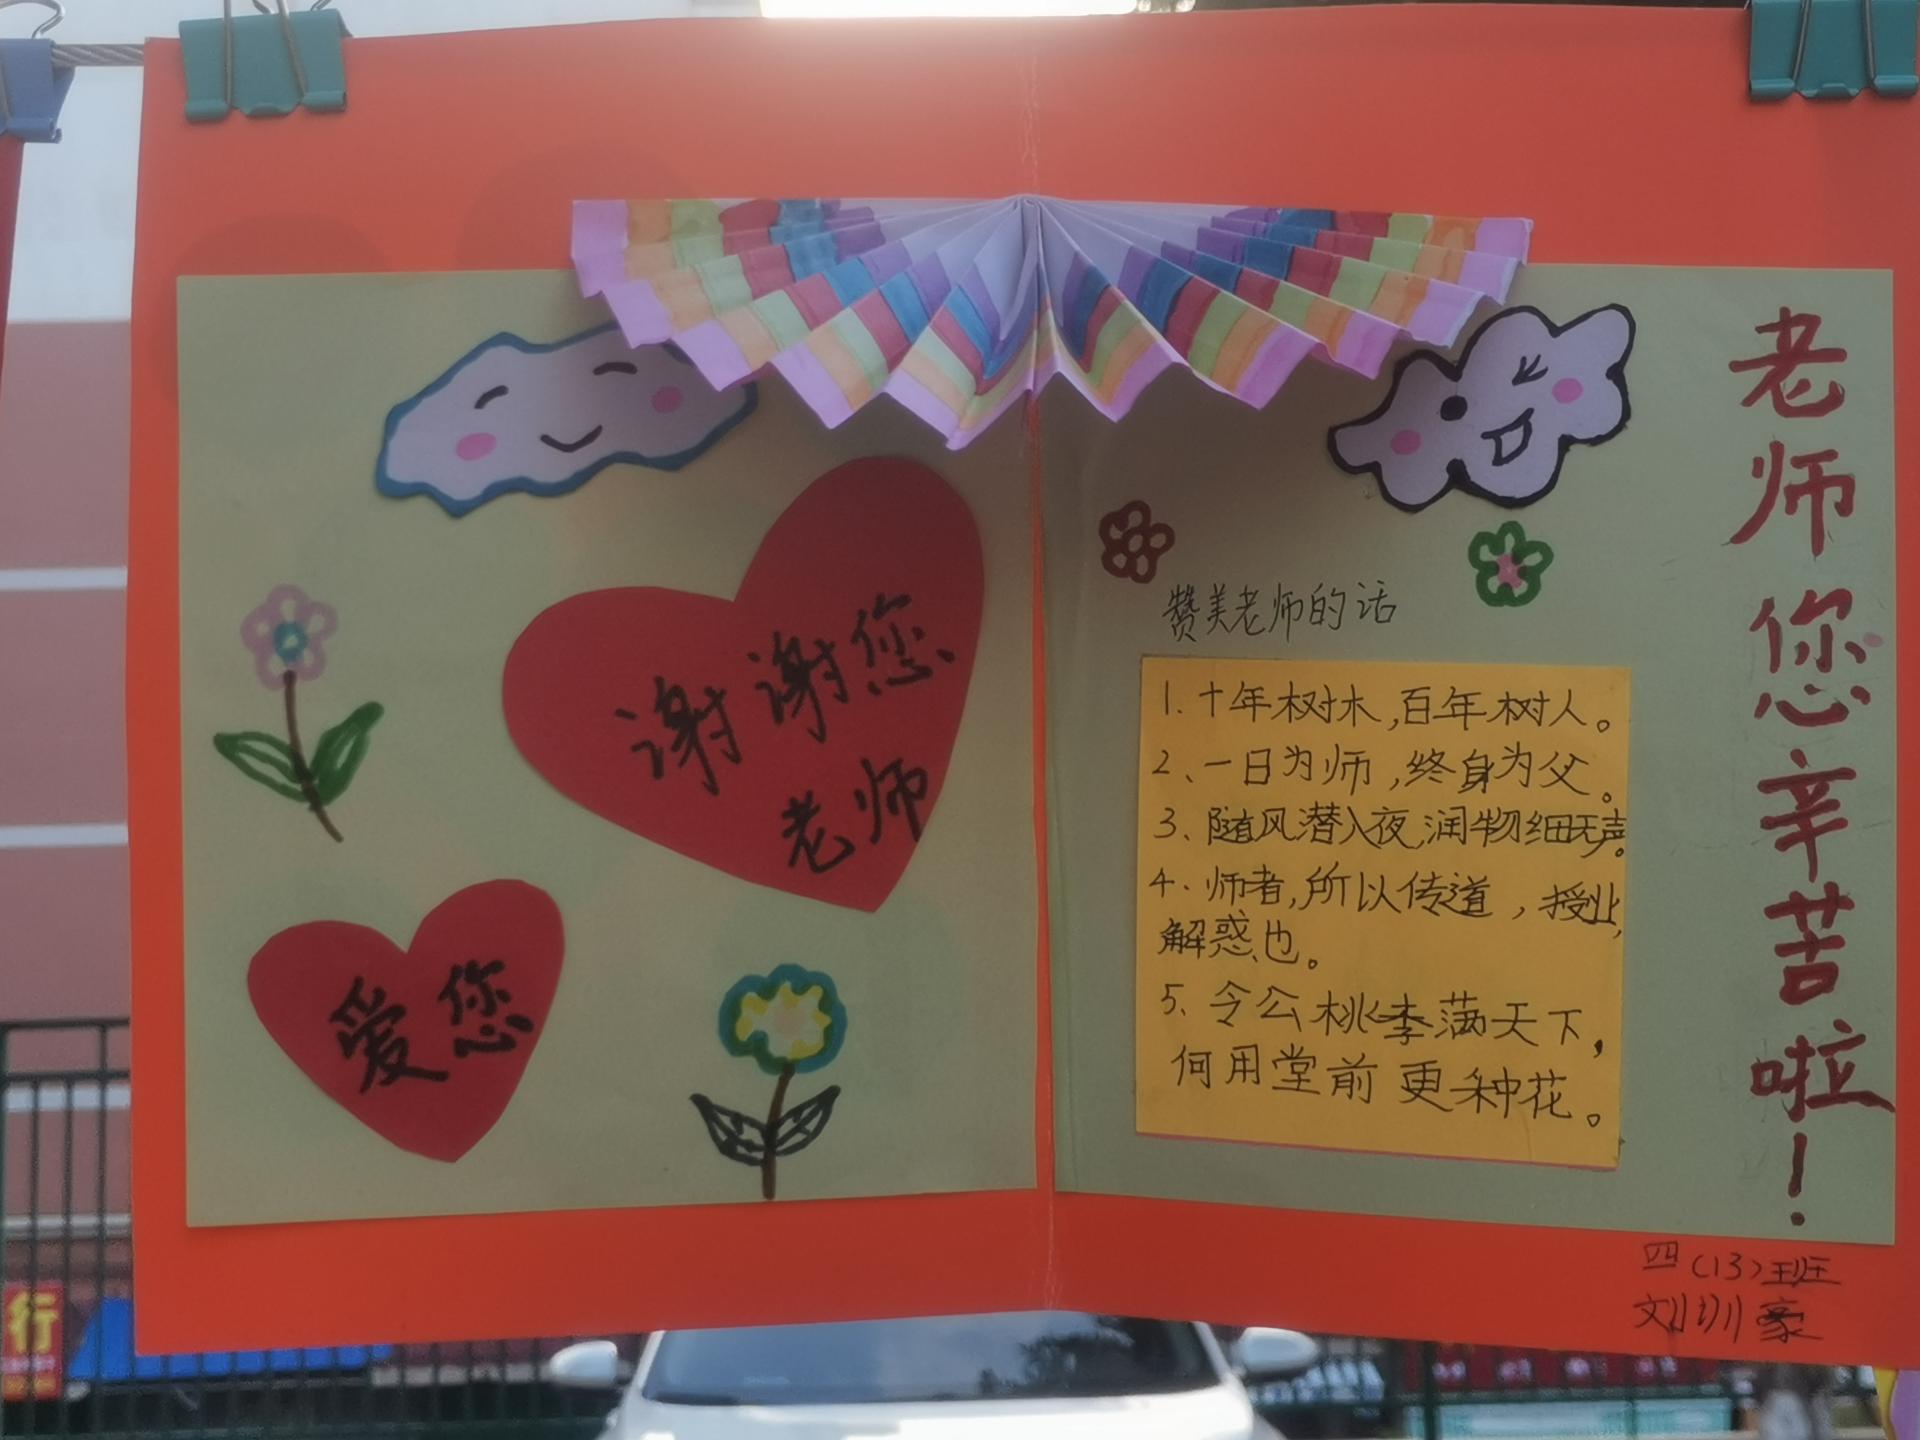 谢谢您
老师
爱您
赞美老师的话
1.十年树木,百年树人。
2、一日为师,终身为父。
3、随风潜入夜,润物细无声。
4.师者,所以传道,授业,
解惑也。
5.令公桃李满天下,
何用堂前更种花。
老师您辛苦啦!
四(13)班
刘圳豪
行